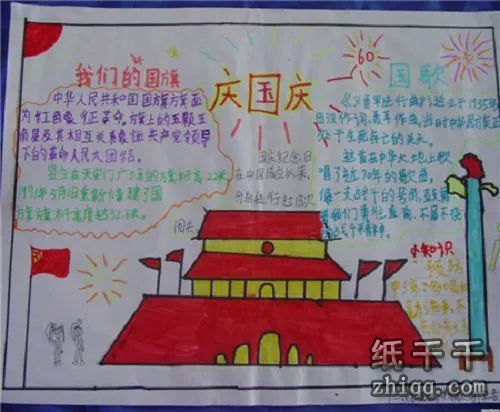 我们的国旗
中华人民共和国国旗旗面
为红色象征革命,旗上的五颗五
角星及其相互关系象征共产党领导
下的革命人民大团结。
竖立在天安门广场的旗杆高22米
1991年5月1日重新修建了国
旗旗杆高度达32.6米
庆国庆
国庆纪念日
在中国成立以来,
分别进行过13次
阅兵
60
国歌
《义勇军进行曲》诞生于1935年
田汉作词,聂耳作曲,当时中华民族正
处于生死存亡的关头。
这首在中华大地上歌
唱了近70年的歌曲,
像一支战斗的号角,鼓舞
着我们勇往直前、不屈不挠
小知识
预防
纸千千
zhiqq.com